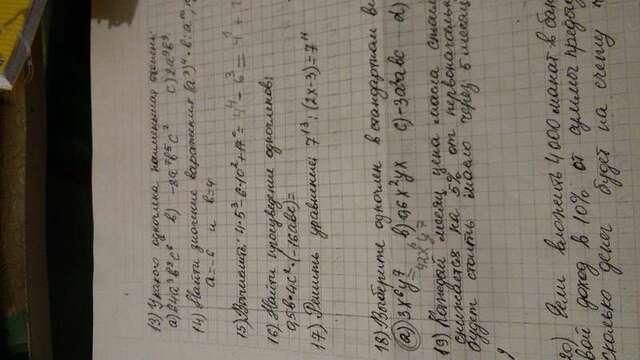 13) У какого одночлена наименьшая степень:
a) 64a³b²c⁶ b) -8a⁷b⁵c² c) 2a⁹b⁹
14) Найти значение варажения (a³)⁴·b:a¹⁰,
a=-6 и b=4
15) Вычислить: 4·5³-6·10²+17⁰= 4⁴-6³= 4
16) Найти произведение одночленов:
0,5b·4c²·(-16abc)=
17) Решить уравнение: 7¹³:(2x-3)=7¹¹
18) Выберите одночлен в стандартном ви
a) 3x⁶y⁷ b) -0,6x²yx c) -3a³abc d)
42x⁶y⁷
19) Каждый месяц цена масла стоим
снижается на 5% от первоначаль
будет стоить масло через 5 месяц
20) Если вложить 4000 манат в бан
вой доход в 10% от суммы преды
сколько денег будет на счету